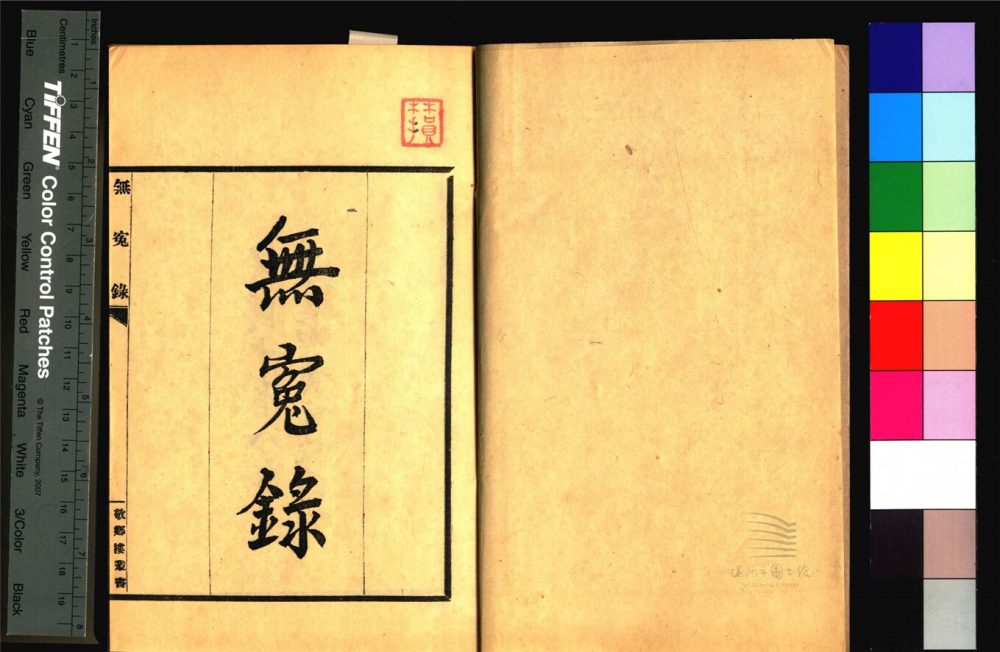 無
寃
錄
無寃錄
敬鄉樓叢書
Inches
Centimetres
TIFFEN® Color Control Patches © The Tiffen Company, 2007
Blue Cyan Green Yellow Red Magenta White 3/Color Black
1 2 3 4 5 6 7 8 9 10 11 12 13 14 15 16 17 18 19
1 2 3 4 5 6 7 8
溫州市圖書館
WENZHOU LIBRARY